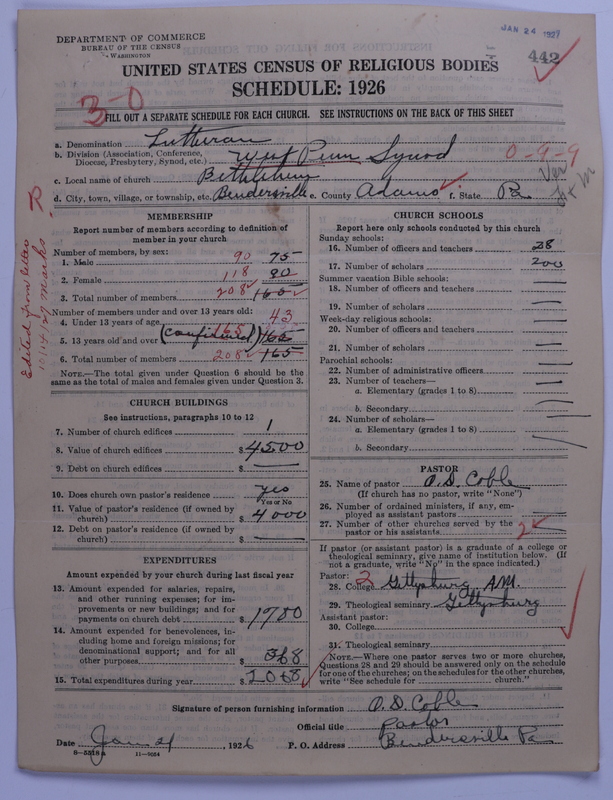 JAN 24 1927
DEPARTMENT OF COMMERCE
BUREAU OF THE CENSUS
WASHINGTON
442
UNITED STATES CENSUS OF RELIGIOUS BODIES
SCHEDULE: 1926
3-0
FILL OUT A SEPARATE SCHEDULE FOR EACH CHURCH. SEE INSTRUCTIONS ON THE BACK OF THIS SHEET
a. Denomination Lutheran
b. Division (Association, Conference, Diocese, Presbytery, Synod, etc.) West Penn Synod 0-9-9
c. Local name of church Bethlehem
d. City, town, village, or township, etc. Bendersville e. County Adams f. State Pa
Edited from letter
10/14/27 Marks
MEMBERSHIP
Report number of members according to definition of
member in your church
Number of members, by sex:
1. Male 90 75
2. Female 118 90
3. Total number of members 208 165
Number of members under and over 13 years old:
4. Under 13 years of age 43
5. 13 years old and over (confirmed) 165 165
6. Total number of members 208 165
NOTE.—The total given under Question 6 should be the
same as the total of males and females given under Question 3.
CHURCH BUILDINGS
See instructions, paragraphs 10 to 12
7. Number of church edifices 1
8. Value of church edifices $ 4500
9. Debt on church edifices $
10. Does church own pastor's residence yes
Yes or No
11. Value of pastor's residence (if owned by
church) $ 4000
12. Debt on pastor's residence (if owned by
church) $
EXPENDITURES
Amount expended by your church during last fiscal year
13. Amount expended for salaries, repairs,
and other running expenses; for im-
provements or new buildings; and for
payments on church debt $ 1700
14. Amount expended for benevolences, in-
cluding home and foreign missions; for
denominational support; and for all
other purposes 368
15. Total expenditures during year $ 2068
CHURCH SCHOOLS
Report here only schools conducted by this church
Sunday schools:
16. Number of officers and teachers 28
17. Number of scholars 200
Summer vacation Bible schools:
18. Number of officers and teachers
19. Number of scholars
Week-day religious schools:
20. Number of officers and teachers
21. Number of scholars
Parochial schools:
22. Number of administrative officers
23. Number of teachers—
a. Elementary (grades 1 to 8)
b. Secondary
24. Number of scholars—
a. Elementary (grades 1 to 8)
b. Secondary
PASTOR
25. Name of pastor O. D. Coble
(If church has no pastor, write "None")
26. Number of ordained ministers, if any, em-
ployed as assistant pastors
27. Number of other churches served by the
pastor or his assistants 2
If pastor (or assistant pastor) is a graduate of a college or
theological seminary, give name of institution below. (If
not a graduate, write "No" in the space indicated.)
Pastor: 2
28. College Gettysburg A.M.
29. Theological seminary Gettysburg
Assistant pastor:
30. College
31. Theological seminary
NOTE.—Where one pastor serves two or more churches,
Questions 28 and 29 should be answered only on the schedule
for one of the churches; on the schedules for the other churches,
write "See schedule for church."
Signature of person furnishing information O. D. Coble
Official title Pastor
Date Jan 21 1926 P. O. Address Bendersville Pa
8—5818 a 11—9024